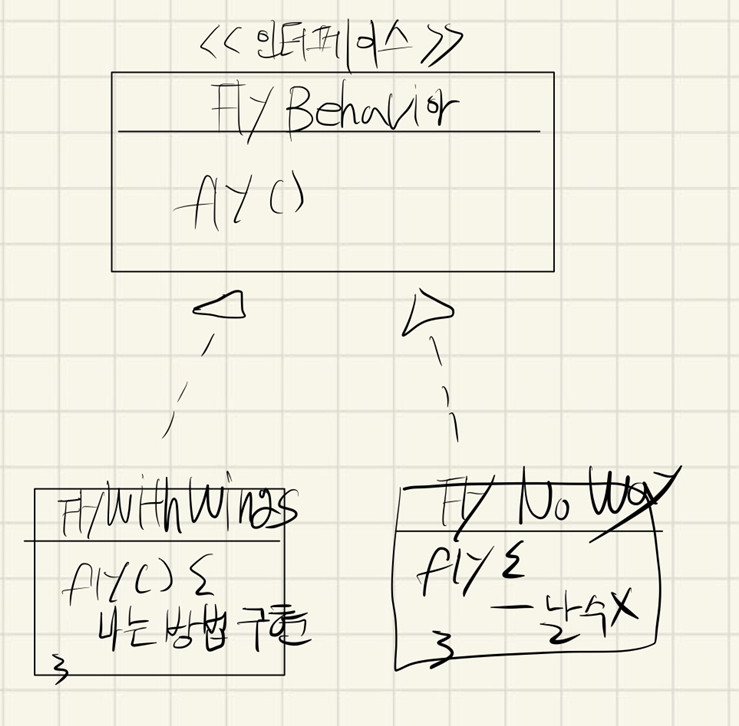 <<인터페이스>>
Fly Behavior
fly()
FlyWithWings
fly() {
나는 방법 구현
}
Fly No Way
fly {
— 날 수 X
}